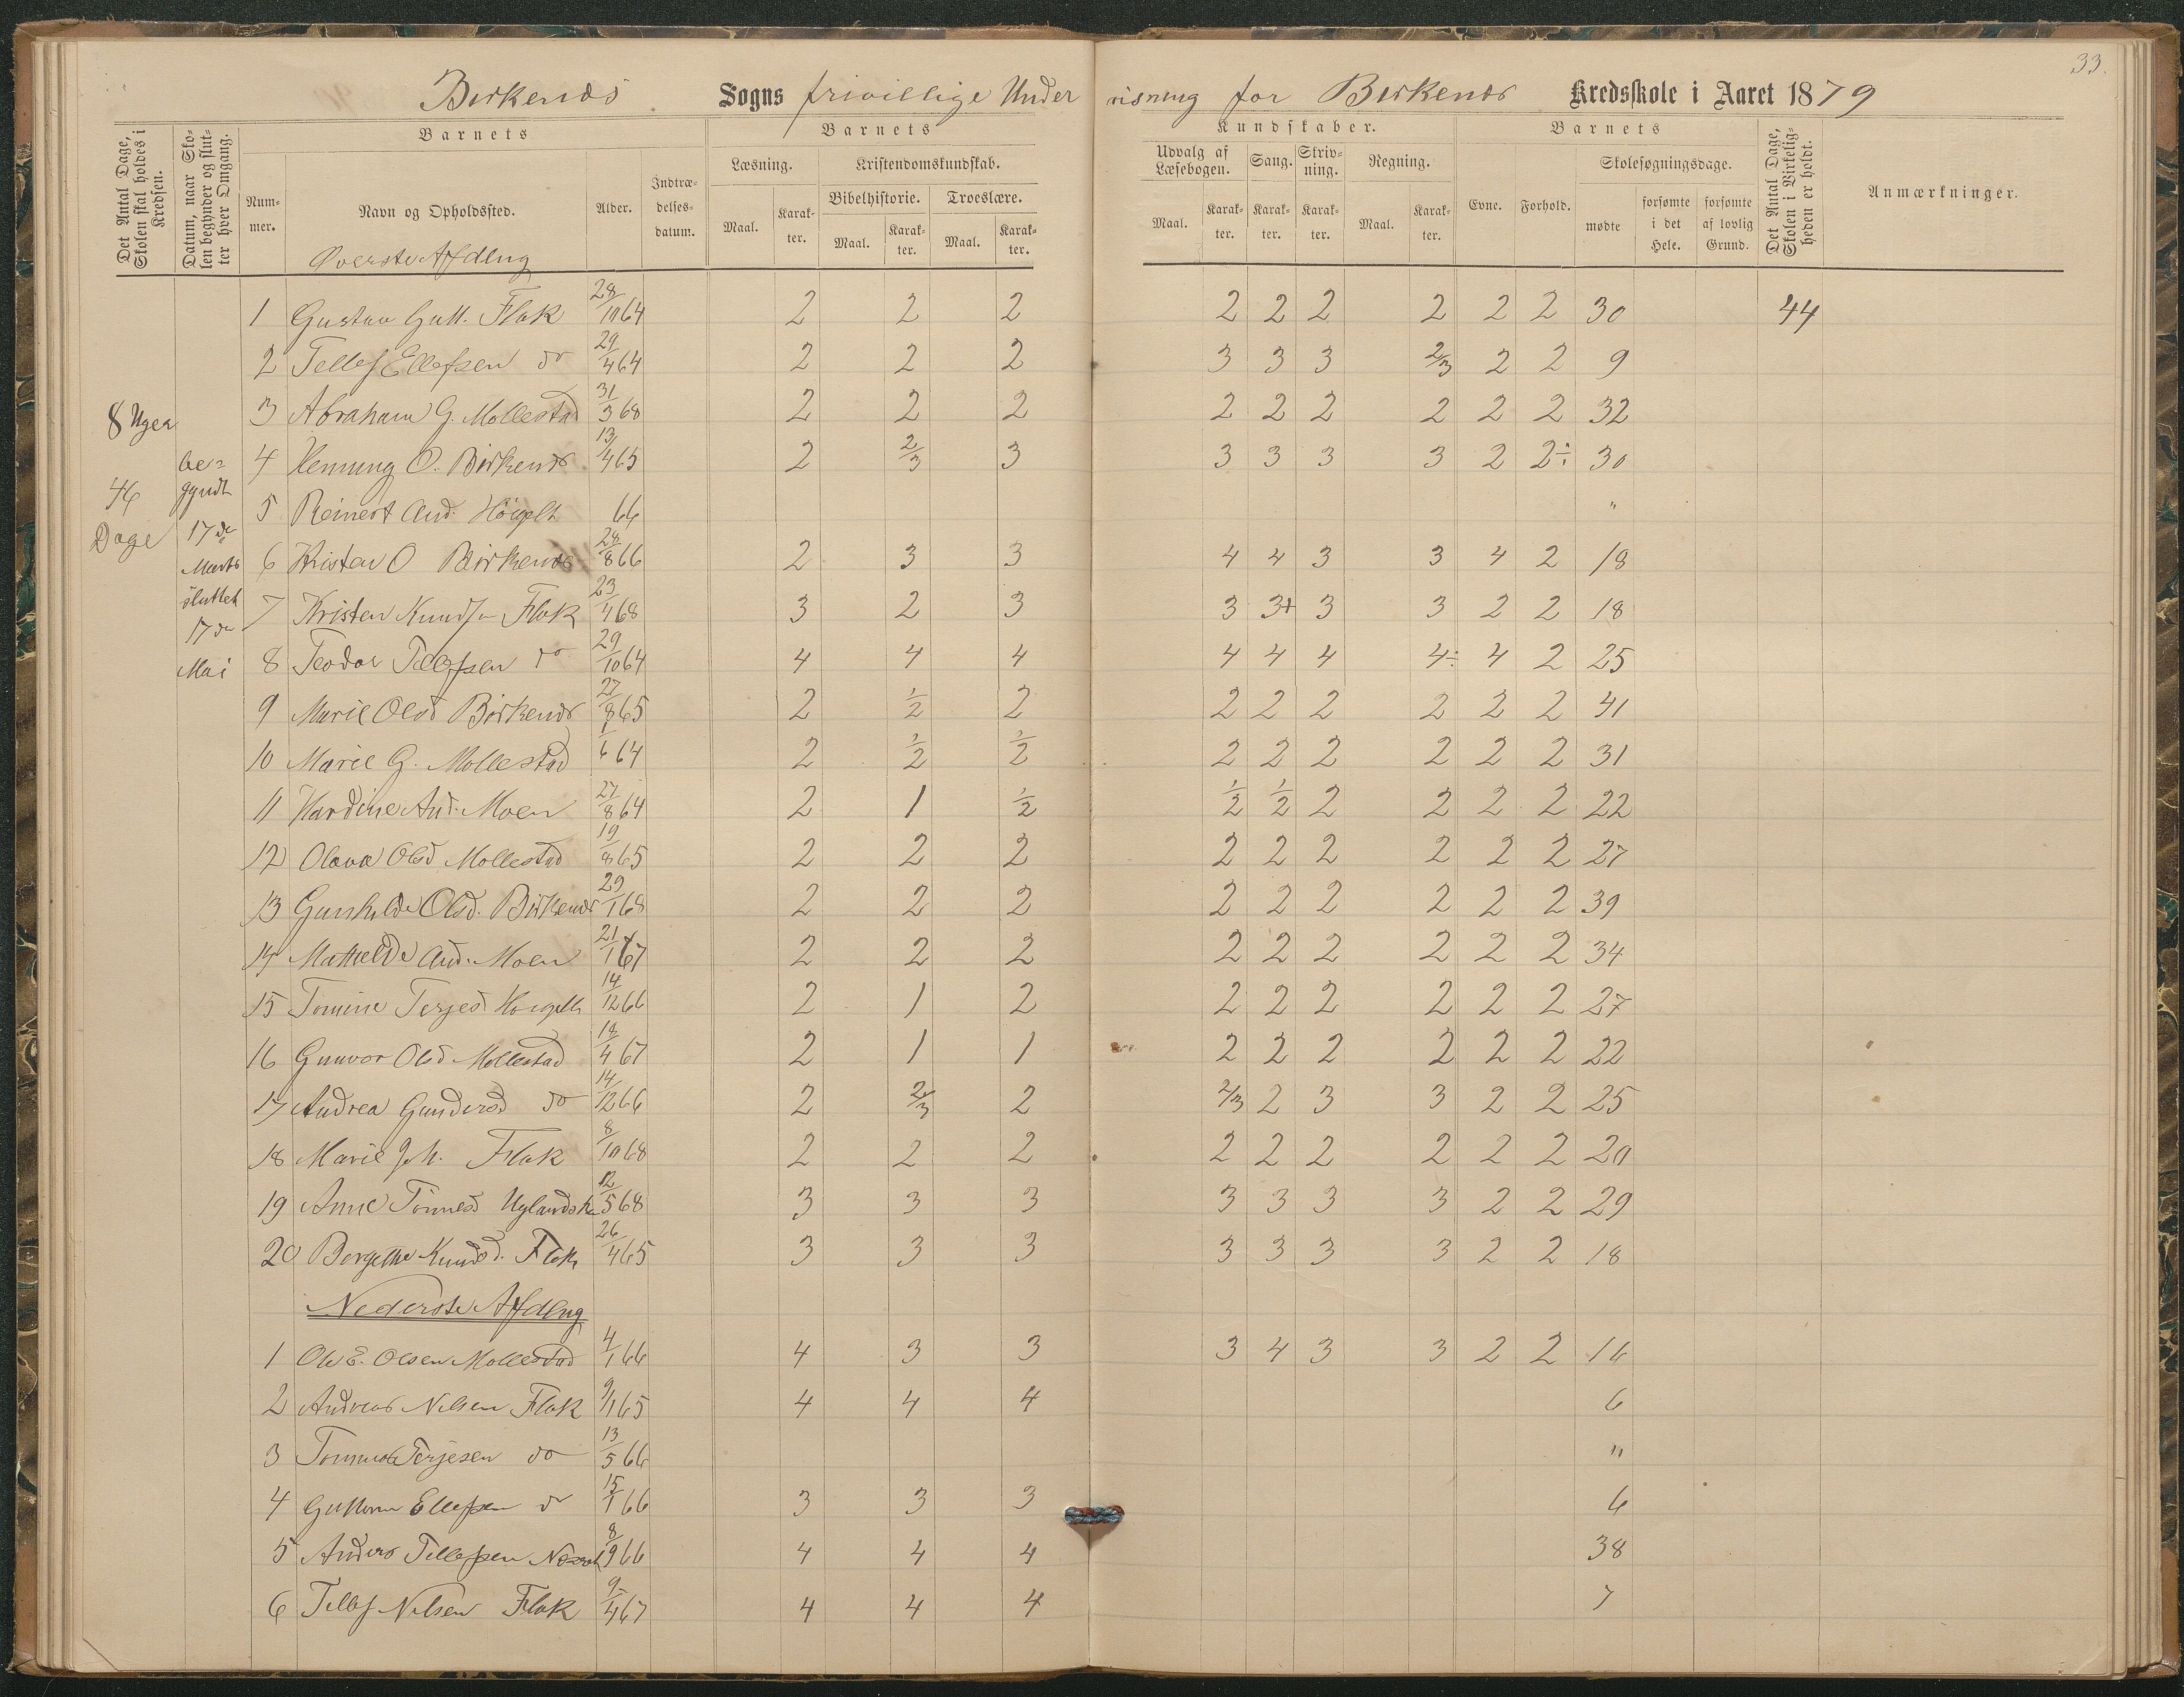 33.
Birkenæs Sogns frivillige Under visning for Birkenæs Kredsskole i Aaret 1879
Det Antal Dage, Skolen skal holdes i Kredsen.
Datum, naar Skolen begynder og slutter hver Omgang.
Barnets
Nummer.
Navn og Opholdssted.
Alder.
Indtrædelsesdatum.
Barnets
Læsning.
Maal.
Karakter.
Kristendomskundskab.
Bibelhistorie.
Maal.
Karakter.
Troeslære.
Maal.
Karakter.
Kundskaber.
Udvalg af Læsebogen.
Maal.
Karakter.
Sang.
Karakter.
Skrivning.
Karakter.
Regning.
Maal.
Karakter.
Barnets
Evne.
Forhold.
Skolesøgningsdage.
mødte
forsømte i det Hele.
forsømte af lovlig Grund.
Det Antal Dage, Skolen i Virkeligheden er holdt.
Anmærkninger.
8 Uger
46
Dage
be=
gyndt
17de
Marts
sluttet
17de
Mai
Øverste Afdlng
1 Gustav Gutt. Flak 28/10 64 2 2 2 2 2 2 2 2 2 30 44
2 Tellef Ellefsen do 29/4 64 2 2 2 3 3 3 2/3 2 2 9
3 Abraham G. Mollestad 31/3 68 2 2 2 2 2 2 2 2 2 32
4 Henning O. Birkenæs 13/4 65 2 2/3 3 3 3 3 3 2 2÷ 30
5 Reinert And. 66 "
6 Kristen O Birkenæs 28/8 66 2 3 3 4 4 3 3 4 2 18
7 Kristen Knuds Flak 23/4 68 3 2 3 3 3+ 3 3 2 2 18
8 Teodor Tellefsen do 29/10 64 4 4 4 4 4 4 4÷ 4 2 25
9 Marie Olsd Birkenæs 27/8 65 2 1/2 2 2 2 2 2 2 2 41
10 Marie G. Mollestad 1/6 64 2 1/2 1/2 2 2 2 2 2 2 31
11 Hardine And. Moen 27/8 64 2 1 1/2 1/2 1/2 2 2 2 2 22
12 Olava Olsd Mollestad 19/8 65 2 2 2 2 2 2 2 2 2 27
13 Gunhilde Olsd. Birkenæs 29/1 68 2 2 2 2 2 2 2 2 2 39
14 Mathilde And. Moen 21/1 67 2 2 2 2 2 2 2 2 2 34
15 Tomine Terjesd 14/12 66 2 1 2 2 2 2 2 2 2 27
16 Gunvor Olsd Mollestad 18/4 67 2 1 1 2 2 2 2 2 2 22
17 Andrea Gundersd do 14/12 66 2 2/3 2 2/3 2 3 3 2 2 25
18 Marie Joh. Flak 8/10 68 2 2 2 2 2 2 2 2 2 20
19 Anne Tönnesd 12/5 68 3 3 3 3 3 3 3 2 2 29
20 Bergithe Knudsd. Flak 26/4 65 3 3 3 3 3 3 3 2 2 18
Nederste Afdlng
1 Ole E. Olsen Mollestad 4/1 66 4 3 3 3 4 3 3 2 2 16
2 Andreas Nilsen Flak 9/1 65 4 4 4 6
3 Tönnes Terjesen do 13/5 66 "
4 Guttorm Ellefsen do 15/1 66 3 3 3 6
5 Anders Tellefsen 8/9 66 4 4 4 38
6 Tellef Nilsen Flak 9/4 67 4 4 4 7